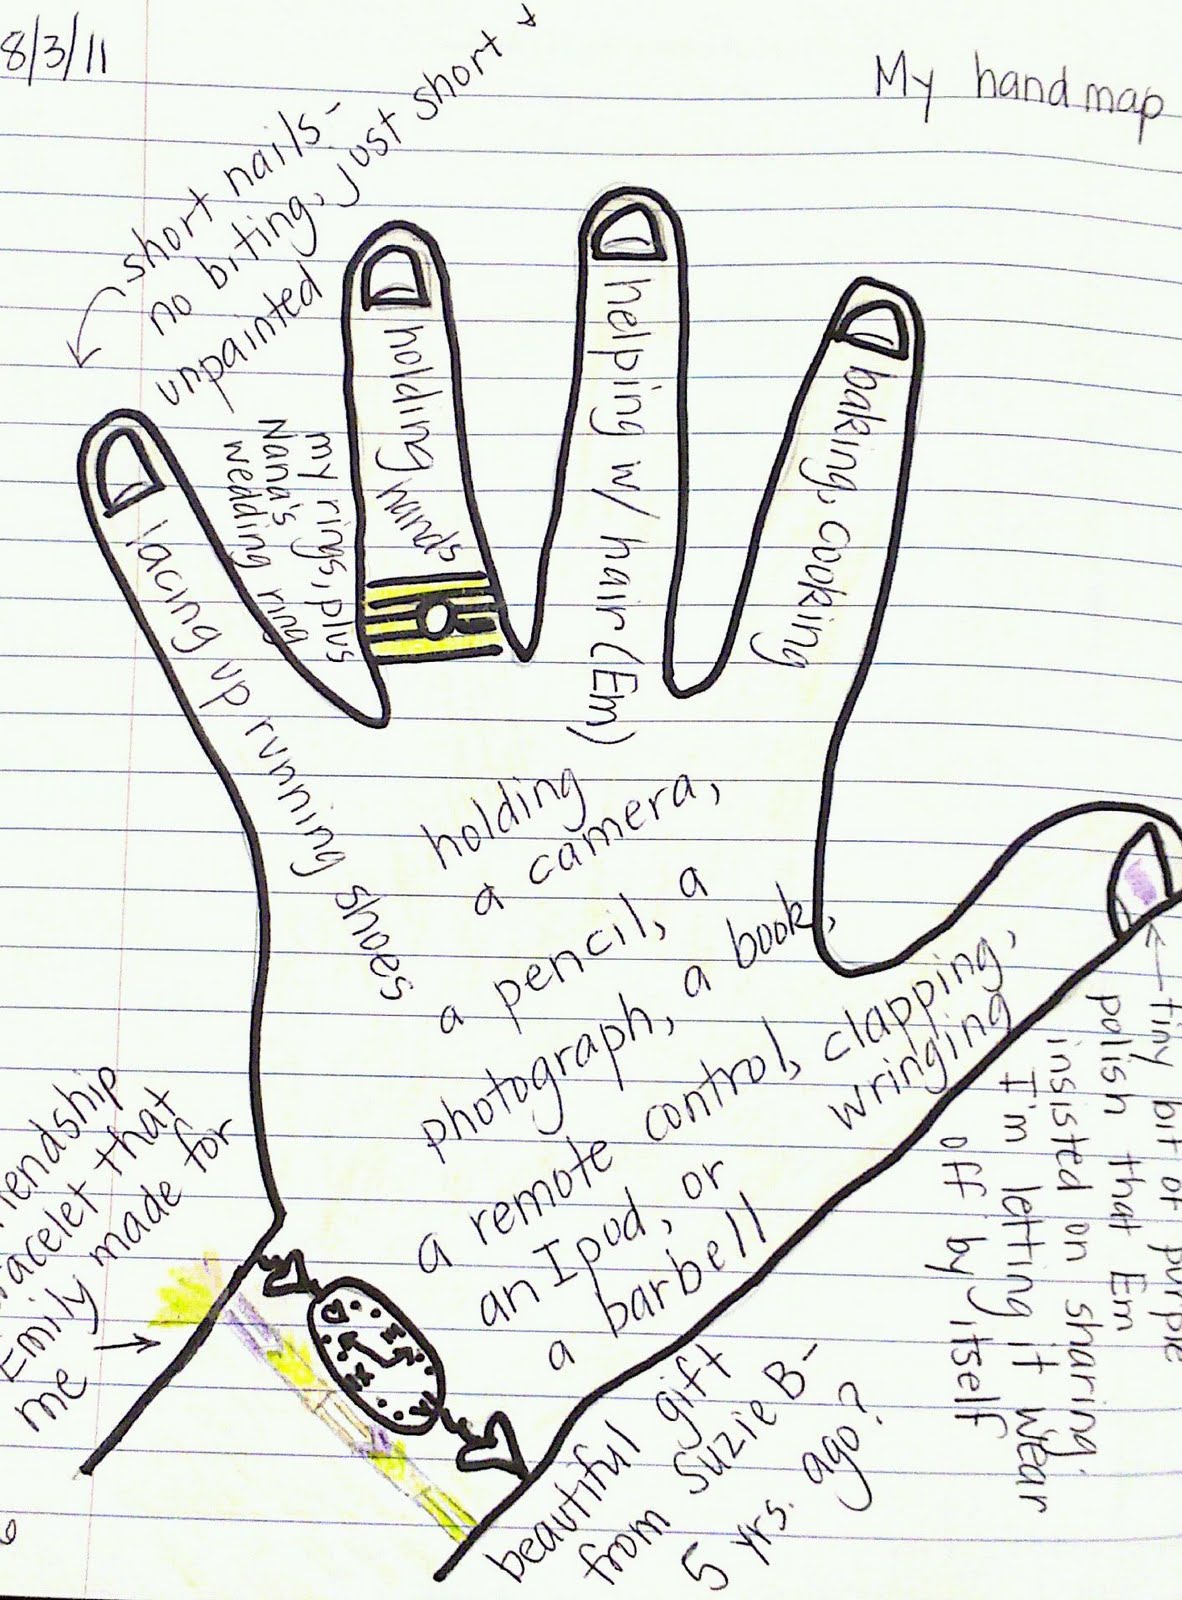 8/3/11
My hand map
short nails-
no biting, just short +
unpainted
my rings, plus
Nana's
wedding ring
lacing up running shoes
holding hands
helping w/ hair (Em)
baking, cooking
holding
a camera,
a pencil, a
photograph, a book,
a remote control, clapping,
wringing
an Ipod, or
a barbell
tiny bit of purple
polish that Em
insisted on sharing.
I'm letting it wear
off by itself
iendship
acelet that
Emily made for
me
beautiful gift
from Suzie B-
5 yrs. ago?